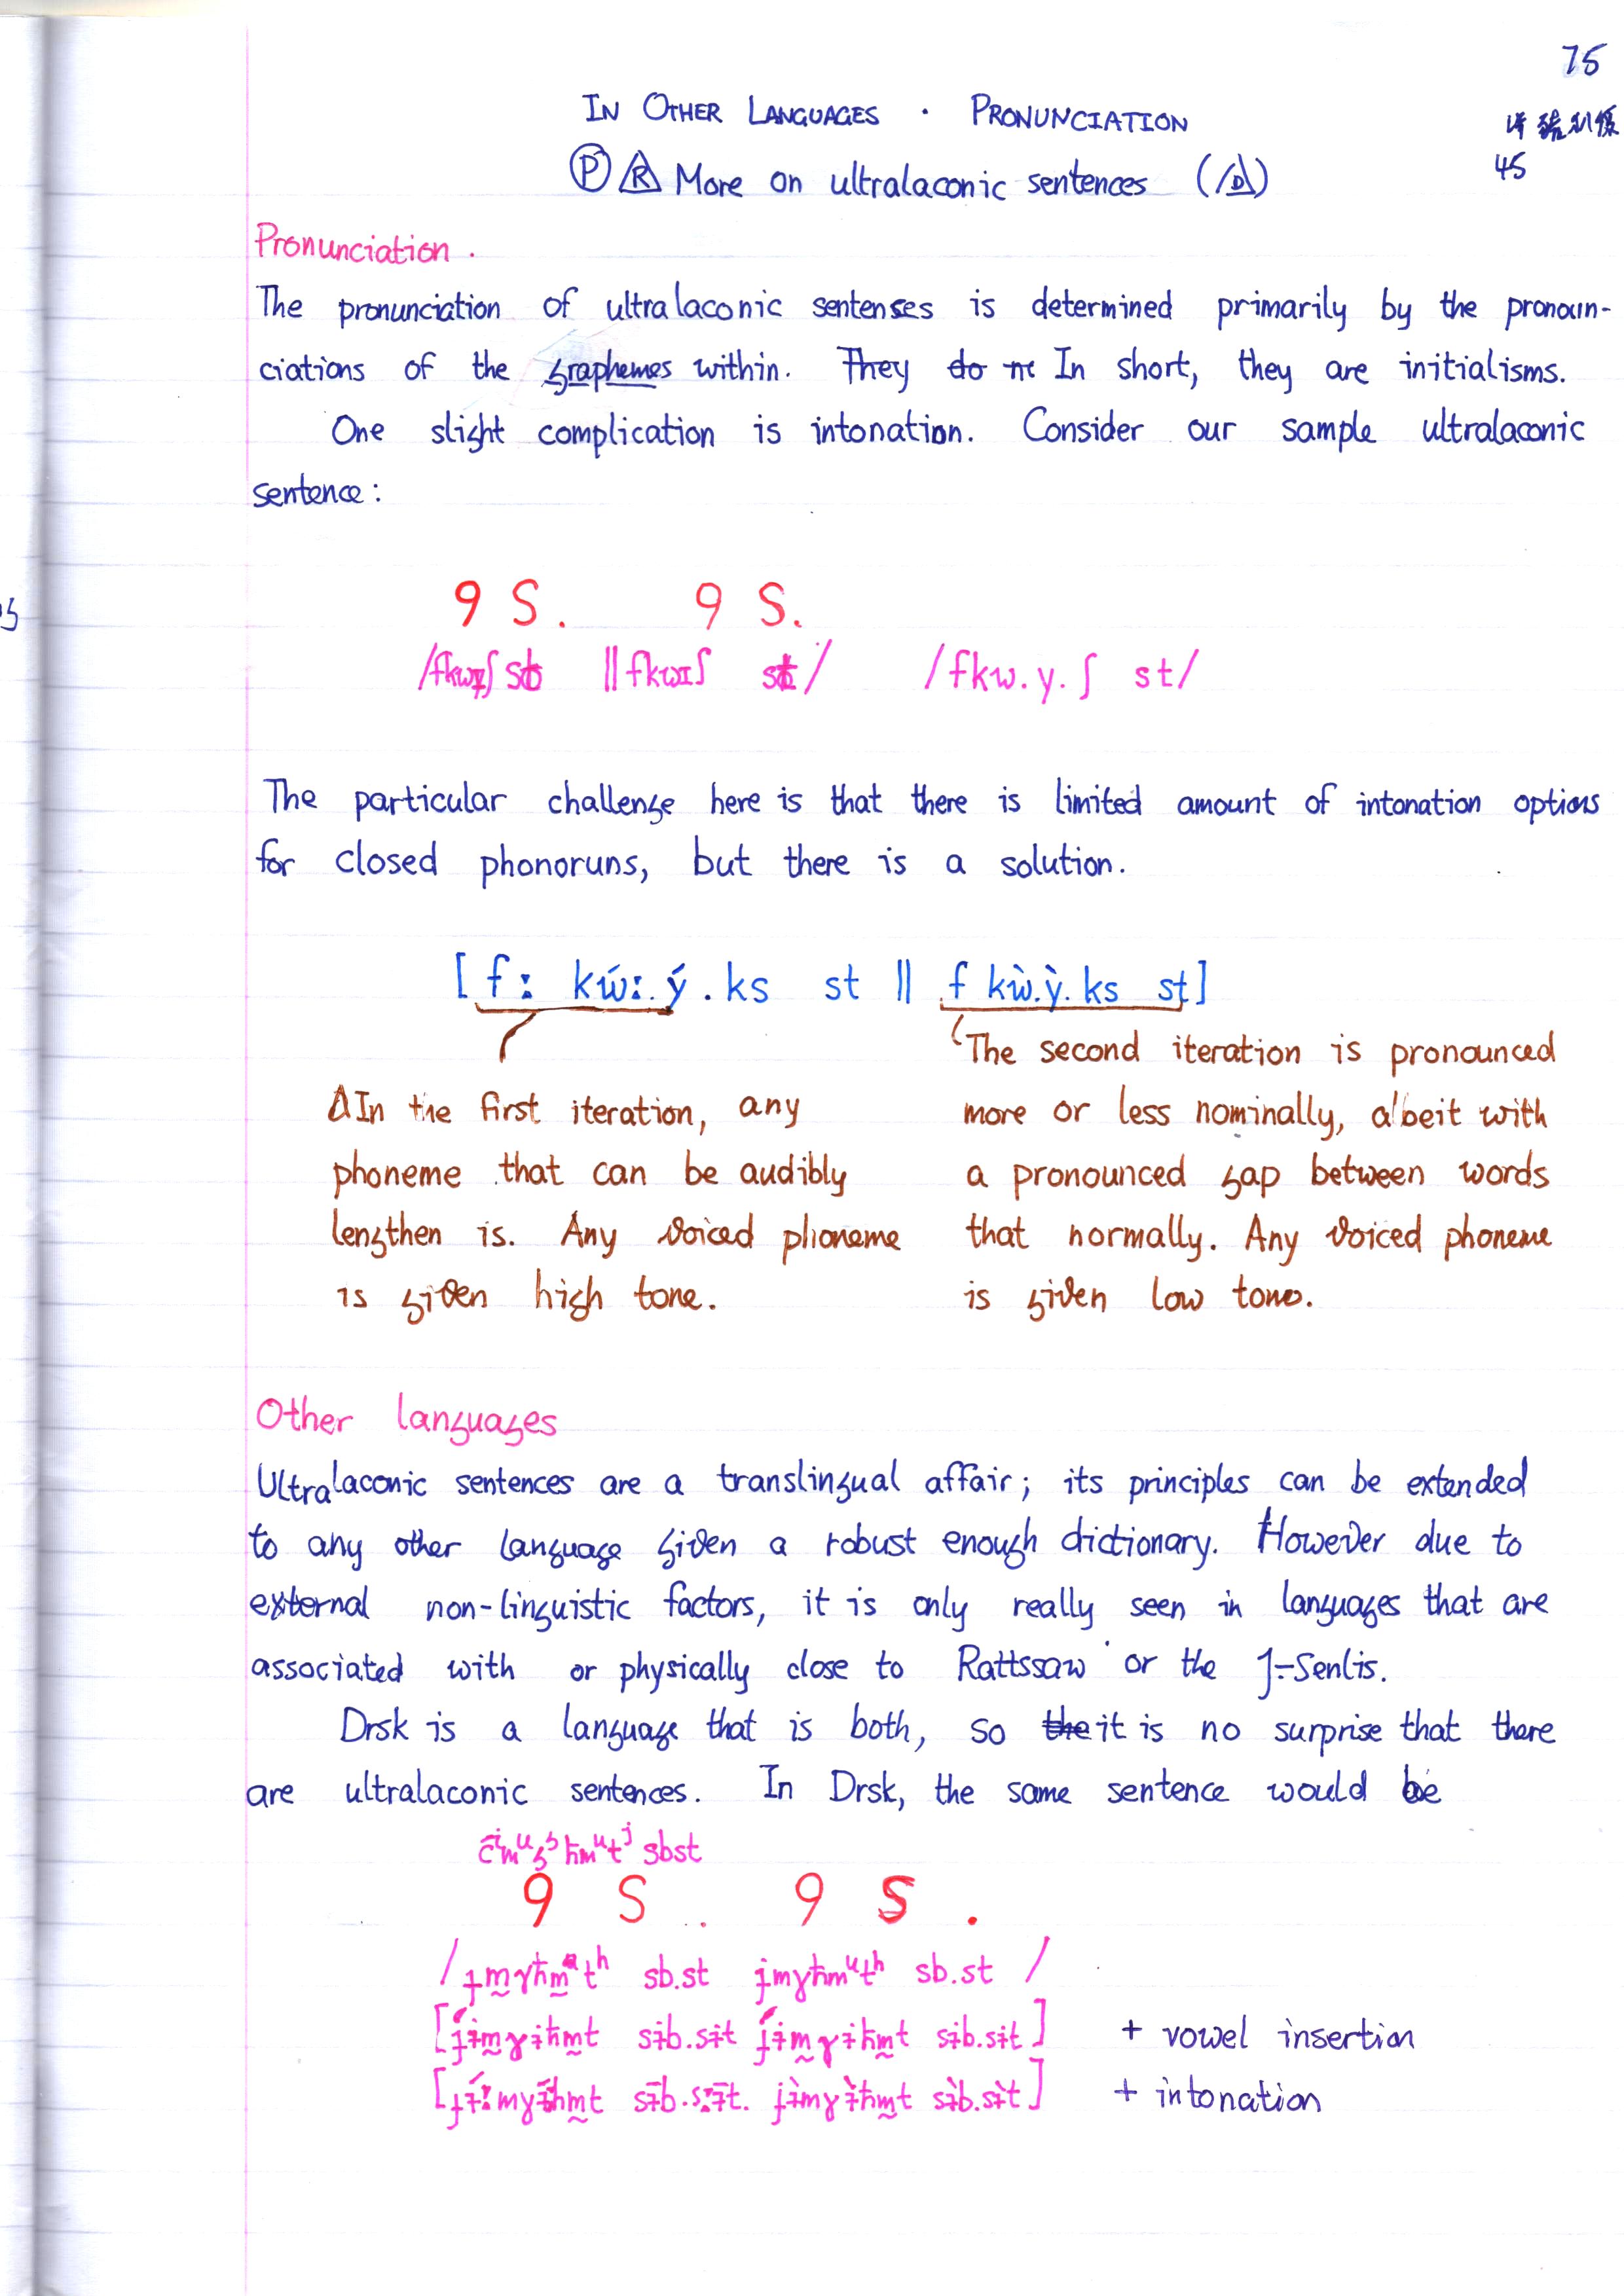 75
IN OTHER LANGUAGES · PRONUNCIATION
45
Ⓟ R More on ultralaconic sentences (/D\)
Pronunciation.
The pronunciation of ultralaconic sentenses is determined primarily by the pronoun-
ciations of the graphemes within. They do n In short, they are initialisms.
One slight complication is intonation. Consider our sample ultralaconic
sentence:
9 S. 9 S.
/fkwɪʃ st || fkwɪʃ st/ /fkw.y.ʃ st/
The particular challenge here is that there is limited amount of intonation options
for closed phonoruns, but there is a solution.
[fː kẃː.ý.ks st || f kẁ.ỳ.ks st]
In the first iteration, any
phoneme that can be audibly
lengthen is. Any voiced phoneme
is given high tone.
The second iteration is pronounced
more or less nominally, albeit with
a pronounced gap between words
that normally. Any voiced phoneme
is given low tone.
Other languages
Ultralaconic sentences are a translingual affair; its principles can be extended
to any other language given a robust enough dictionary. However due to
external non-linguistic factors, it is only really seen in languages that are
associated with or physically close to Rattssaw or the -Senlis.
Drsk is a language that is both, so the it is no surprise that there
are ultralaconic sentences. In Drsk, the same sentence would be
sbst
9 S. 9 S.
sb.st sb.st /
+ vowel insertion
+ intonation